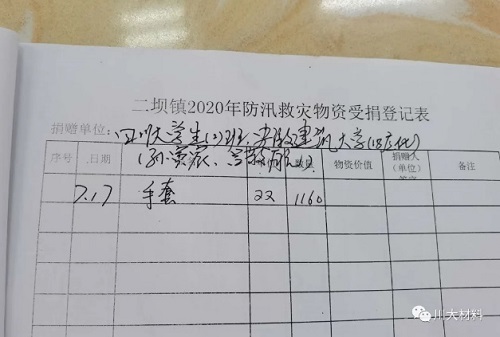 二坝镇2020年防汛救灾物资受捐登记表
捐赠单位：四川大学生(2)班、安徽建筑大学(18应化)
(孙寅宸、
序号 日期 物资价值 捐赠人(单位) 备注
7.17 手套 22 1160
川大材料